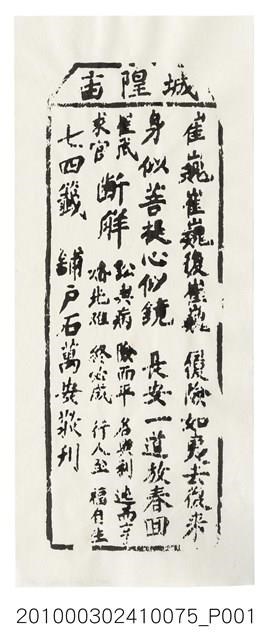 城隍庙
崔巍崔巍復崔巍 履險如夷去復來
身似菩提心似鏡 長安一道放春回
崔武
求官
断解
訟與病 險而平 名與利
終必成 行人至 福自生
七四籤 鋪戶石萬安敬刊
201000302410075_P001